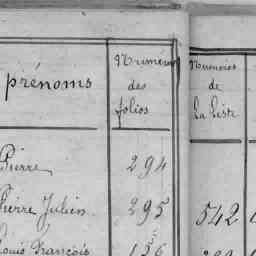 prénoms
Numéros
des
folios
Numéros
de
la Liste
Pierre
294
Pierre Julien
295
542
Louis François